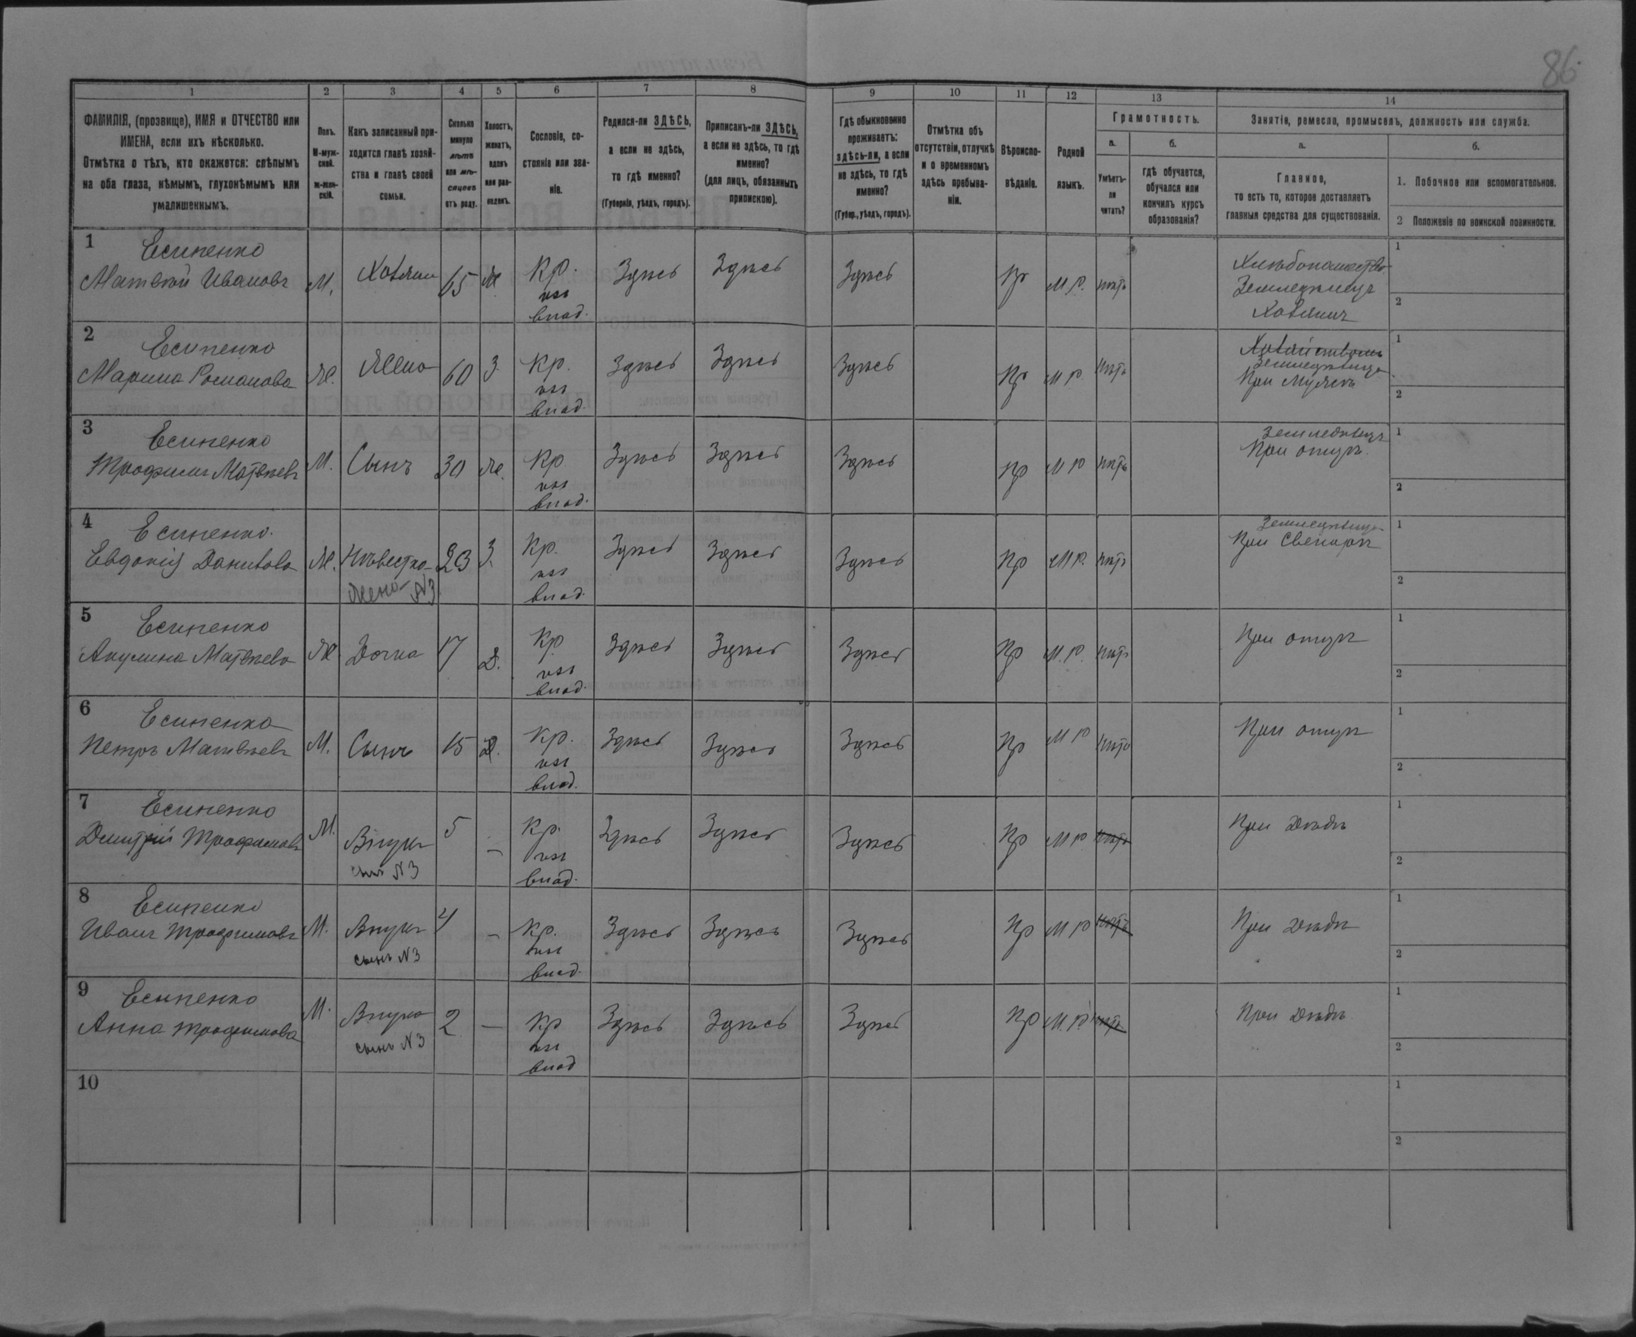 86
1 2 3 4 5 6 7 8 9 10 11 12 13 14
ФАМИЛІЯ, (прозвище), ИМЯ и ОТЧЕСТВО или
ИМЕНА, если ихъ нѣсколько.
Отмѣтка о тѣхъ, кто окажется: слѣпымъ
на оба глаза, нѣмымъ, глухонѣмымъ или
умалишеннымъ.
Полъ.
М-муж-
ской.
ж-жен-
скій.
Какъ записанный при-
ходится главѣ хозяй-
ства и главѣ своей
семьи.
Сколько
минуло
лѣтъ
или мѣ-
сяцевъ
отъ роду.
Холостъ,
женатъ,
вдовъ
или раз-
веденъ.
Сословіе, со-
стояніе или зва-
ніе.
Родился-ли ЗДѢСЬ,
а если не здѣсь,
то гдѣ именно?
(Губернія, уѣздъ, городъ).
Приписанъ-ли ЗДѢСЬ,
а если не здѣсь, то гдѣ
именно?
(для лицъ, обязанныхъ
припискою).
Гдѣ обыкновенно
проживаетъ:
здѣсь-ли, а если
не здѣсь, то гдѣ
именно?
(Губер., уѣздъ, городъ).
Отмѣтка объ
отсутствіи, отлучкѣ
и о временномъ
здѣсь пребыва-
ніи.
Вѣроиспо-
вѣданіе.
Родной
языкъ.
Грамотность.
а.
Умѣетъ-
ли
читать?
б.
гдѣ обучается,
обучался или
кончилъ курсъ
образованія?
Занятіе, ремесло, промыселъ, должность или служба.
а.
Главное,
то есть то, которое доставляетъ
главныя средства для существованія.
б.
1. Побочное или вспомогательное.
2 Положеніе по воинской повинности.
1 Есипенко
Матвѣй Ивановъ М. Хозяин 65 Ж Кр. Здѣсь Здѣсь Здѣсь Пр М.Р. нѣтъ
влад.
Хлѣбопашество
Земледѣлецъ
Хозяинъ
1
2
2 Есипенко
Марина Романова Ж. Жена 60 З Кр. Здѣсь Здѣсь Здѣсь Пр М Р. нѣтъ
влад.
При мужѣ
1
2
3 Есипенко
Трофимъ Матвѣевъ М. Сынъ 30 Ж. Кр Здѣсь Здѣсь Здѣсь Пр М Р нѣтъ
влад.
Земледѣлецъ
При отцѣ.
1
2
4 Есипенко.
Евдокія Данилова Ж. Невѣстка 23 З. Кр. Здѣсь Здѣсь Здѣсь Пр М Р. нѣтъ
жена №3
влад.
При свекорѣ
1
2
5 Есипенко
Акулина Матвѣева Ж Дочка 17 Д. Кр Здѣсь Здѣсь Здѣсь Пр М.Р. нѣтъ
влад.
При отцѣ
1
2
6 Есипенко
Петръ Матвѣевъ М. Сынъ 15 Кр. Здѣсь Здѣсь Здѣсь Пр М Р нѣтъ
влад.
При отцѣ
1
2
7 Есипенко
Дмитрій Трофимовъ М. Внукъ 5 – Кр. Здѣсь Здѣсь Здѣсь Пр М Р нѣтъ
сынъ №3
влад.
При дѣдѣ
1
2
8 Есипенко
Иванъ Трофимовъ М. Внукъ 4 – Кр. Здѣсь Здѣсь Здѣсь Пр М Р нѣтъ
сынъ №3
влад.
При дѣдѣ
1
2
9 Есипенко
Анна Трофимова М. Внука 2 – Кр Здѣсь Здѣсь Здѣсь Пр М.Р. нѣтъ
сынъ №3
влад
При дѣдѣ
1
2
10
1
2